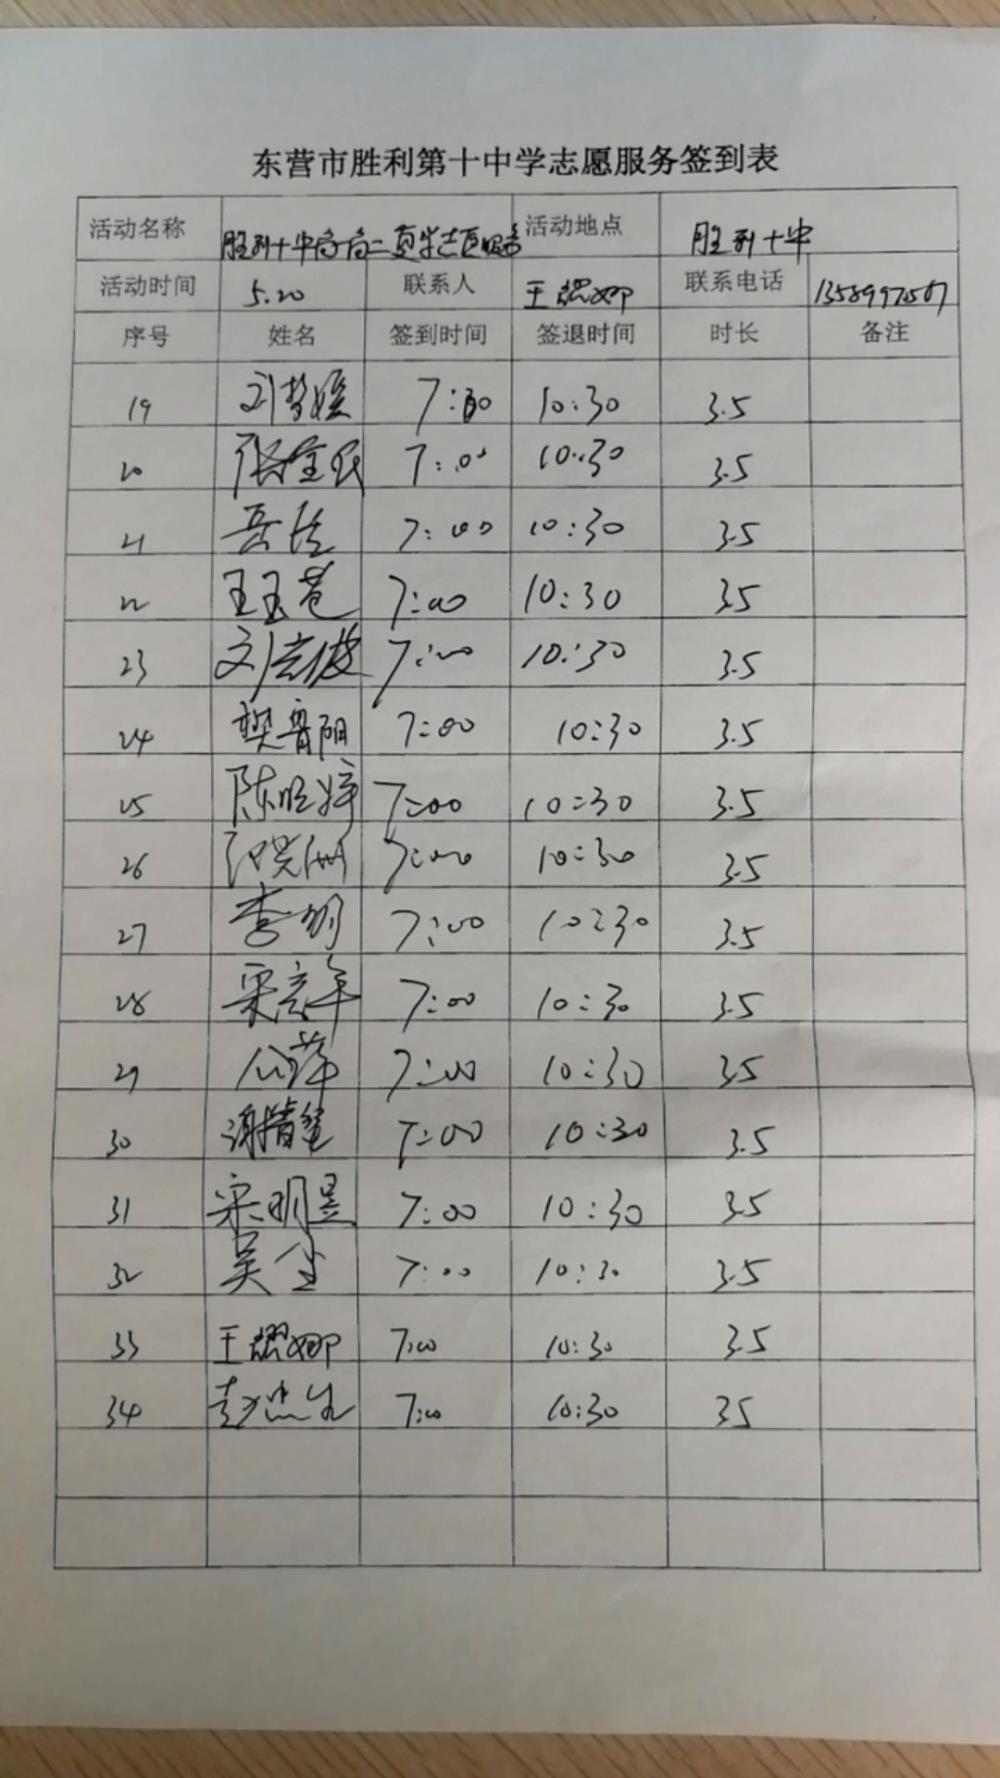 东营市胜利第十中学志愿服务签到表
活动名称 胜利十中 活动地点 胜利十中
活动时间 5.20 联系人 王耀娜 联系电话
序号 姓名 签到时间 签退时间 时长 备注
19 刘梦媛 7:00 10:30 3.5
20 7:00 10:30 3.5
21 7:00 10:30 3.5
22 王玉苍 7:00 10:30 3.5
23 7:00 10:30 3.5
24 樊鲁阴 7:00 10:30 3.5
25 7:00 10:30 3.5
26 7:00 10:30 3.5
27 李明 7:00 10:30 3.5
28 7:00 10:30 3.5
29 7:00 10:30 3.5
30 7:00 10:30 3.5
31 宋明昱 7:00 10:30 3.5
32 7:00 10:30 3.5
33 王耀娜 7:00 10:30 3.5
34 7:00 10:30 35